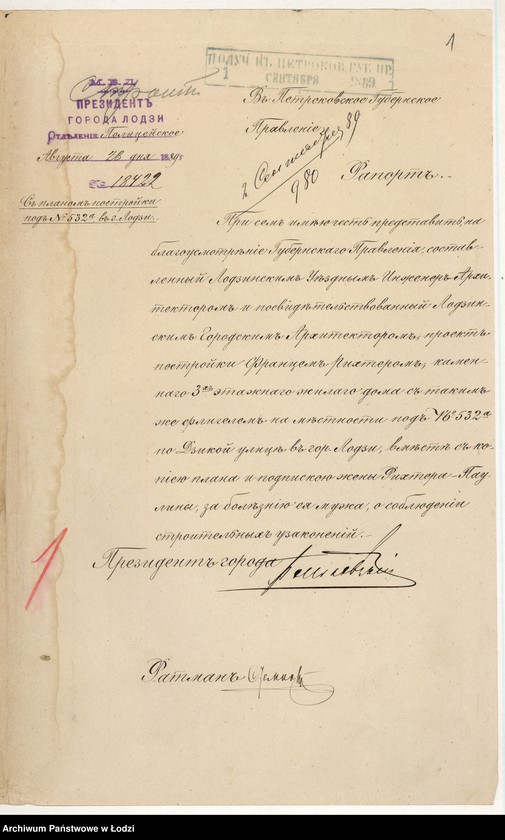 1
ПОЛУЧ. ИЗ ПЕТРОКОВ. ГУБ. ПР.
1 СЕНТЯБРЯ 1889
М. В. Д.
ПРЕЗИДЕНТЪ
ГОРОДА ЛОДЗИ
Отдѣленіе Полицейское
Августа 28 дня 1889 г.
№ 18422
Съ планомъ постройки
подъ № 532а въ г. Лодзи.
Въ Петроковское Губернское
Правленіе
2 Сентября 89
980
Рапортъ.
При семъ имѣю честь представить, на
благоусмотрѣніе Губернскаго Правленія, состав-
ленный Лодзинскимъ Уѣзднымъ Инженеръ Архи-
текторомъ и посвидѣтельствованный Лодзин-
скимъ Городскимъ Архитекторомъ, проектъ
постройки Францемъ Рихтеромъ, камен-
наго 3хъ этажнаго жилаго дома съ такимъ
же флигелемъ на мѣстности подъ № 532а
по Дзикой улицѣ въ гор. Лодзи, вмѣстѣ съ ко-
піею плана и подпискою жены Рихтера – Пау
лины, за болѣзнію ея мужа, о соблюденіи
строительныхъ узаконеній.
Президентъ города
Ратманъ
1
Archiwum Państwowe w Łodzi